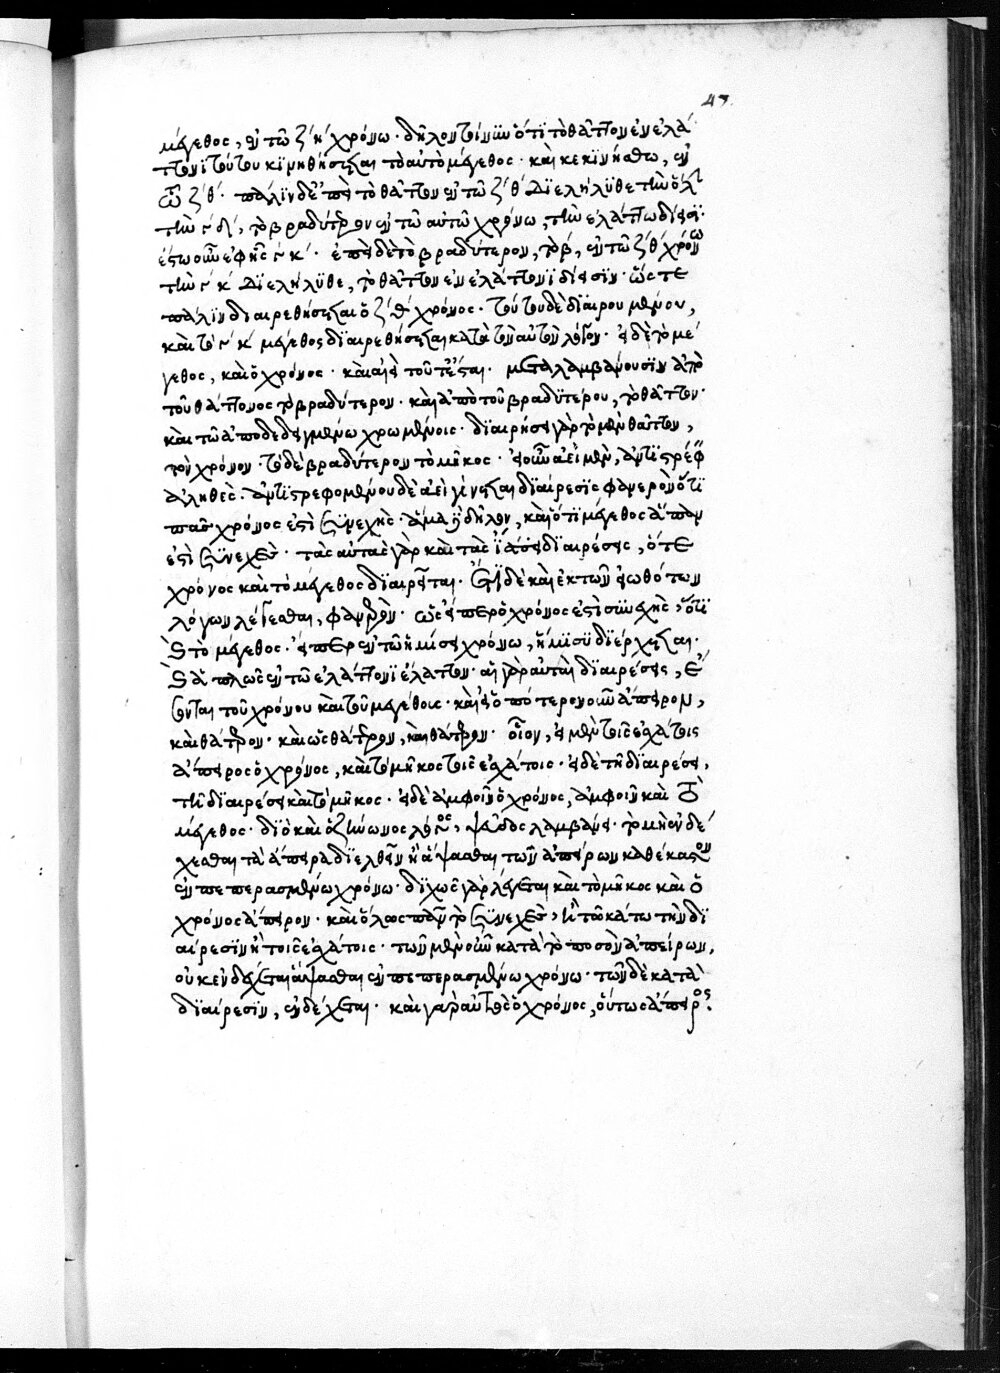 47
μέγεθος, ἐν τῶ ζ´ η´ χρόνω· δῆλον τοίνυν ὅτι τὸ θᾶττον ἐν ἐλά
ττονι τούτου κινηθήσεται τὸ αὐτὸ μέγεθος· καὶ κεκινήσθω, ἐν
ῶ ζ´ θ´· πάλιν δ' ἐπεὶ τὸ θᾶττον ἐν τῶ ζ´ θ´ διελήλυθε τὴν ὅλην
τὴν γ´ δ´, τὸ βραδύτερον ἐν τῶ αὐτῶ χρόνω, τὴν ἐλάττω δίεισι·
ἔστω οὖν ἐφ' ῆς γ´ κ´· ἐπεὶ δὲ τὸ βραδύτερον, τὸ β´, ἐν τῶ ζ´ θ´ χρόνω
τὴν γ´ κ´ διελήλυθε, τὸ θᾶττον ἐν ἐλάττονι δίεισιν· ὥστε
πάλιν διαιρεθήσεται ὁ ζ´ θ´ χρόνος· τούτου δὲ διαιρουμένου,
καὶ τὸ γ´ κ´ μέγεθος διαιρεθήσεται κατὰ τὸν αὐτὸν λόγον· εἰ δὲ τὸ μέ
γεθος, καὶ ὁ χρόνος· καὶ ἀεὶ τοῦτ' ἔσται· μεταλαμβάνουσιν ἀπὸ
τοῦ θάττονος τὸ βραδύτερον· καὶ ἀπὸ τοῦ βραδυτέρου, τὸ θᾶττον·
καὶ τῶ ἀποδεδειγμένω χρωμένοις· διαιρήσει γὰρ τὸ μὲν θᾶττον,
τὸν χρόνον· τὸ δὲ βραδύτερον τὸ μῆκος· εἰ οὖν ἀεὶ μὲν, ἀντιστρέφειν
ἀληθές· ἀντιστρεφομένου δὲ ἀεὶ γίνεται διαίρεσις φανερὸν ὅτι
πᾶς χρόνος ἐστὶ συνεχής· ἅμα δὲ δῆλον, καὶ ὅτι μέγεθος ἅπαν
ἐστὶ συνεχές· τὰς αὐτὰς γὰρ καὶ τὰς ἴσας διαιρέσεις, ὅ τε
χρόνος καὶ τὸ μέγεθος διαιρεῖται· ἔτι δὲ καὶ ἐκ τῶν εἰωθότων
λόγων λέγεσθαι, φανερὸν· ὡς εἴπερ ὁ χρόνος ἐστὶ συνεχὴς, ὅτι
καὶ τὸ μέγεθος· εἴπερ ἐν τῶ ἡμίσει χρόνω, ἥμισυ διέρχεται·
καὶ ἁπλῶς ἐν τῶ ἐλάττονι ἔλαττον· αἱ γὰρ αὐταὶ διαιρέσεις, ἔ
σονται τοῦ χρόνου καὶ τοῦ μεγέθους· καὶ εἰ ὁποτερονοῦν ἄπειρον,
καὶ θάτερον· καὶ ὡς θάτερον, καὶ θάτερον· οἷον, εἰ μὲν τοῖς ἐσχάτοις
ἄπειρος ὁ χρόνος, καὶ τὸ μῆκος τοῖς ἐσχάτοις· εἰ δὲ τῆ διαιρέσει,
τῆ διαιρέσει καὶ τὸ μῆκος· εἰ δὲ ἀμφοῖν ὁ χρόνος, ἀμφοῖν καὶ τὸ
μέγεθος· διὸ καὶ ὁ ζήνωνος λόγος, ψεῦδος λαμβάνει· τὸ μὴ ἐνδέ
χεσθαι τὰ ἄπειρα διελθεῖν ἢ ἅψασθαι τῶν ἀπείρων καθ' ἕκαστον
ἐν πεπερασμένω χρόνω· διχῶς γὰρ λέγεται καὶ τὸ μῆκος καὶ ὁ
χρόνος ἄπειρον· καὶ ὅλως πᾶν τὸ συνεχές, ἤτοι κατὰ τὴν δι
αίρεσιν ἢ τοῖς ἐσχάτοις· τῶν μὲν οὖν κατὰ τὸ ποσὸν ἀπείρων,
οὐκ ἐνδέχεται ἅψασθαι ἐν πεπερασμένω χρόνω· τῶν δὲ κατὰ
διαίρεσιν, ἐνδέχεται· καὶ γὰρ αὐτὸς ὁ χρόνος, οὕτως ἄπειρος.